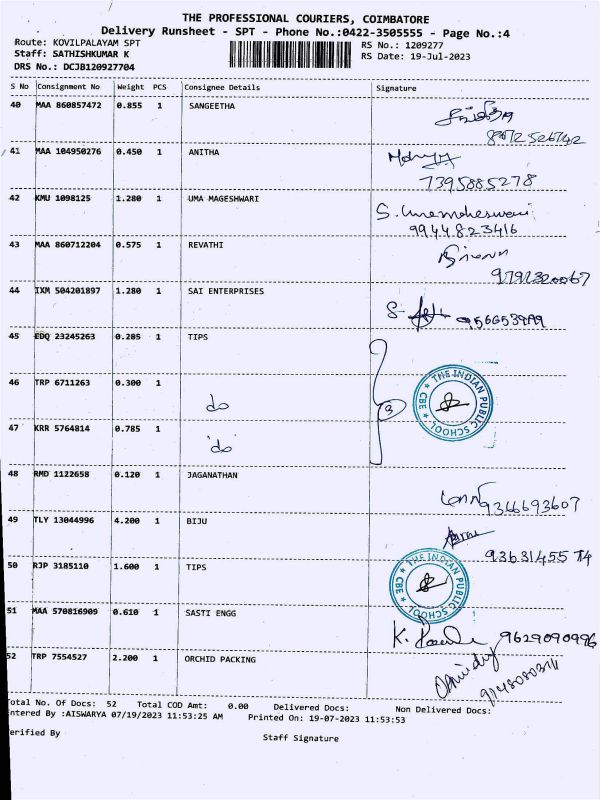 THE PROFESSIONAL COURIERS, COIMBATORE
Delivery Runsheet - SPT - Phone No.:0422-3505555 - Page No.:4
Route: KOVILPALAYAM SPT
RS No.: 1209277
Staff: SATHISHKUMAR K
RS Date: 19-Jul-2023
DRS No.: DCJB120927704
S No Consignment No Weight PCS Consignee Details Signature
40 MAA 860857472 0.855 1 SANGEETHA
8072526742
41 MAA 104950276 0.450 1 ANITHA
7395885278
42 KMU 1098125 1.280 1 UMA MAGESHWARI S. Umamaheswari
9944823416
43 MAA 860712204 0.575 1 REVATHI
44 IXM 504201897 1.280 1 SAI ENTERPRISES
45 EDQ 23245263 0.285 1 TIPS
46 TRP 6711263 0.300 1 do
3
THE INDIAN PUBLIC SCHOOL
CBE
47 KRR 5764814 0.785 1 'do'
48 RMD 1122658 0.120 1 JAGANATHAN
9366693607
49 TLY 13044996 4.200 1 BIJU
9363145574
50 RJP 3185110 1.600 1 TIPS
THE INDIAN PUBLIC SCHOOL
CBE
51 MAA 570816909 0.610 1 SASTI ENGG
9629090996
52 TRP 7554527 2.200 1 ORCHID PACKING
otal No. Of Docs: 52 Total COD Amt: 0.00 Delivered Docs: Non Delivered Docs:
ntered By :AISWARYA 07/19/2023 11:53:25 AM Printed On: 19-07-2023 11:53:53
erified By
Staff Signature